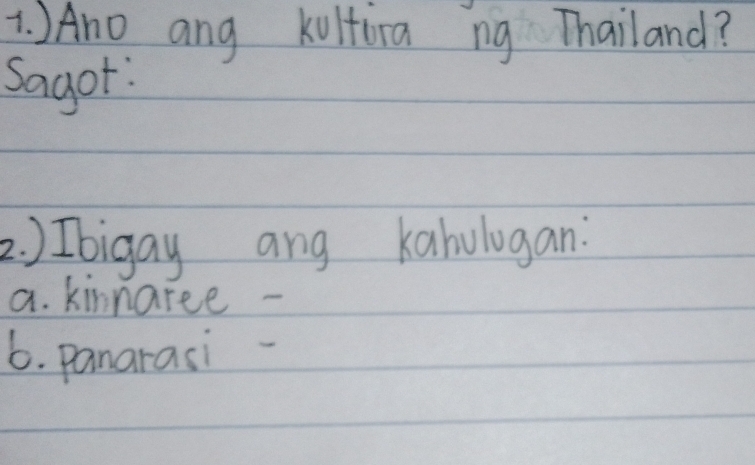 1.) Ano ang kultura ng Thailand?
Sagot:
2.) Ibigay ang kahulugan:
a. kinnaree -
b. panarasi -